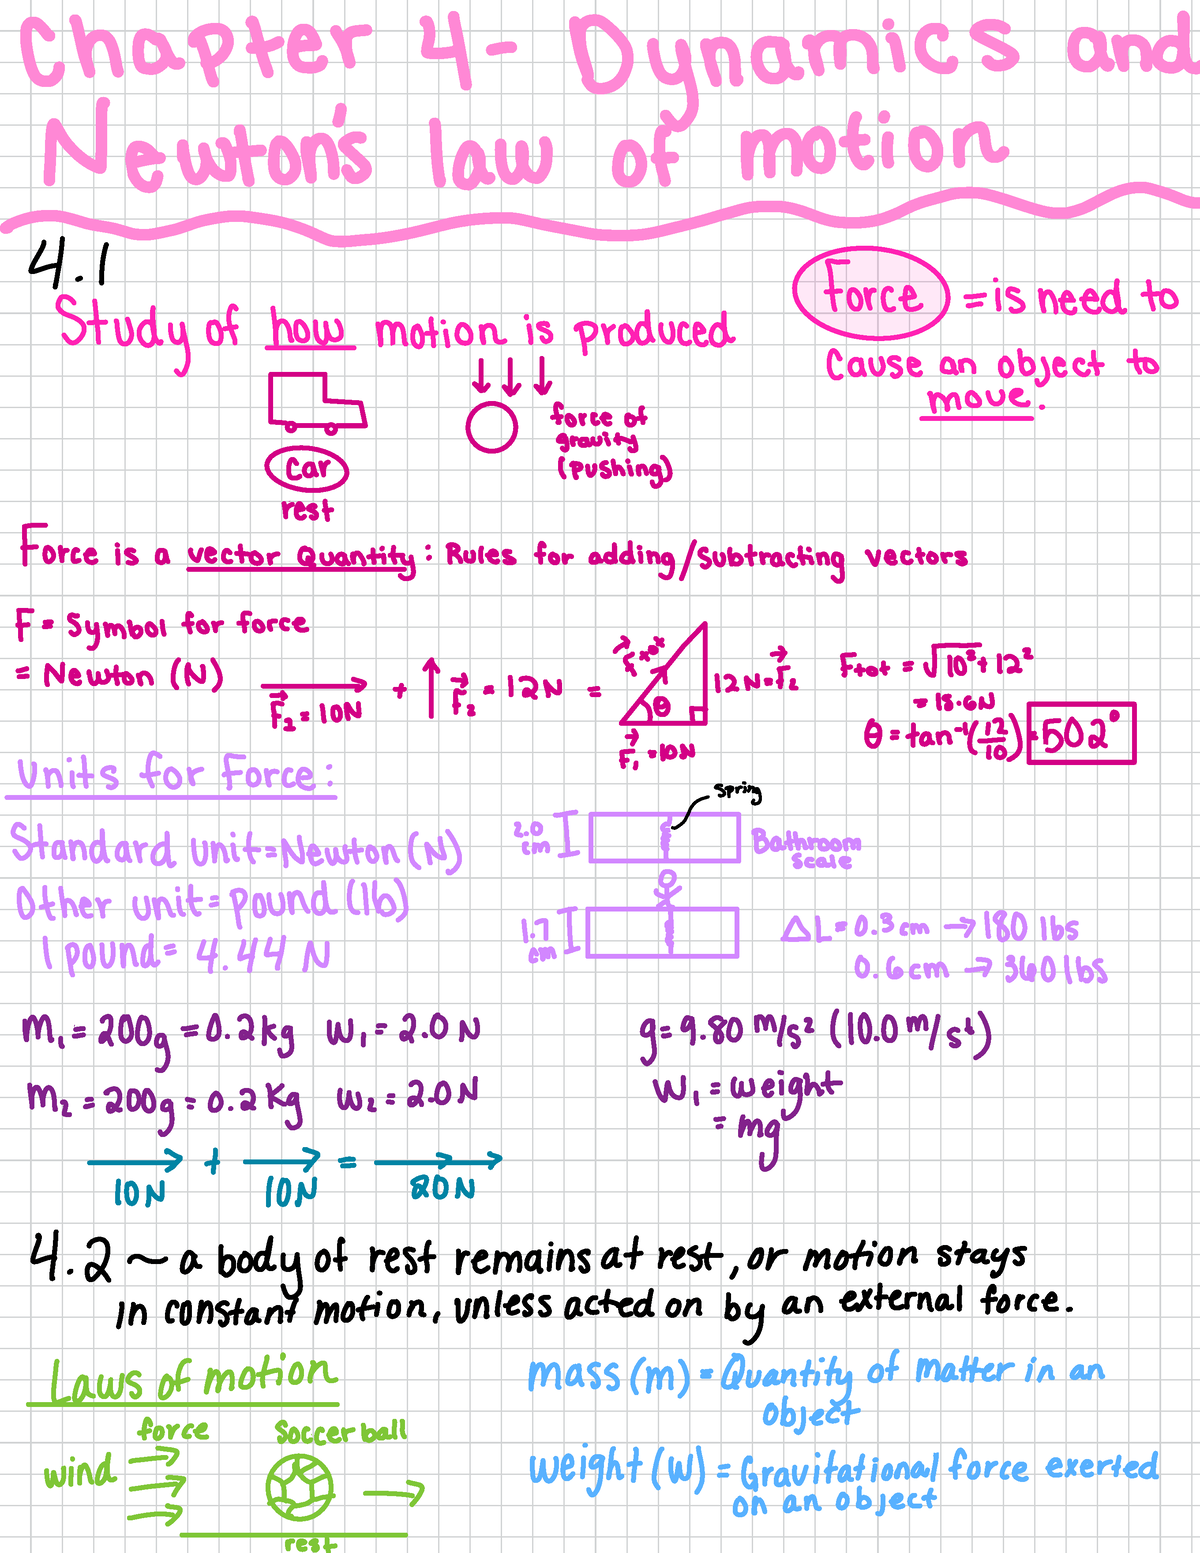 Chapter 4- Dynamics and
Newton's law of motion
4.1
Study of how motion is produced
Force = is need to
cause an object to
move.
force of
gravity
(pushing)
car
rest
Force is a vector Quantity: Rules for adding/subtracting vectors
F = Symbol for force
= Newton (N)
F⃗₂ = 10N
+
F⃗₂ = 12N =
F⃗
θ
12N = F⃗₂
F⃗₁ = 10N
Ftot = √10² + 12²
= 15.6N
θ = tan⁻¹(12/10) = 502°
Units for Force:
Standard unit = Newton (N)
Other unit = pound (lb)
1 pound = 4.44 N
spring
2.0 cm
Bathroom
scale
1.7 cm
ΔL = 0.3cm → 180 lbs
0.6cm → 360 lbs
m₁ = 200g = 0.2kg w₁ = 2.0 N
m₂ = 200g = 0.2 Kg w₂ = 2.0 N
g = 9.80 m/s² (10.0 m/s²)
W₁ = weight
= mg
→ + → = →→
10N 10N 20N
4.2 ~ a body of rest remains at rest, or motion stays
in constant motion, unless acted on by an external force.
Laws of motion
force
soccer ball
wind
rest
mass (m) = Quantity of matter in an
object
weight (w) = Gravitational force exerted
on an object